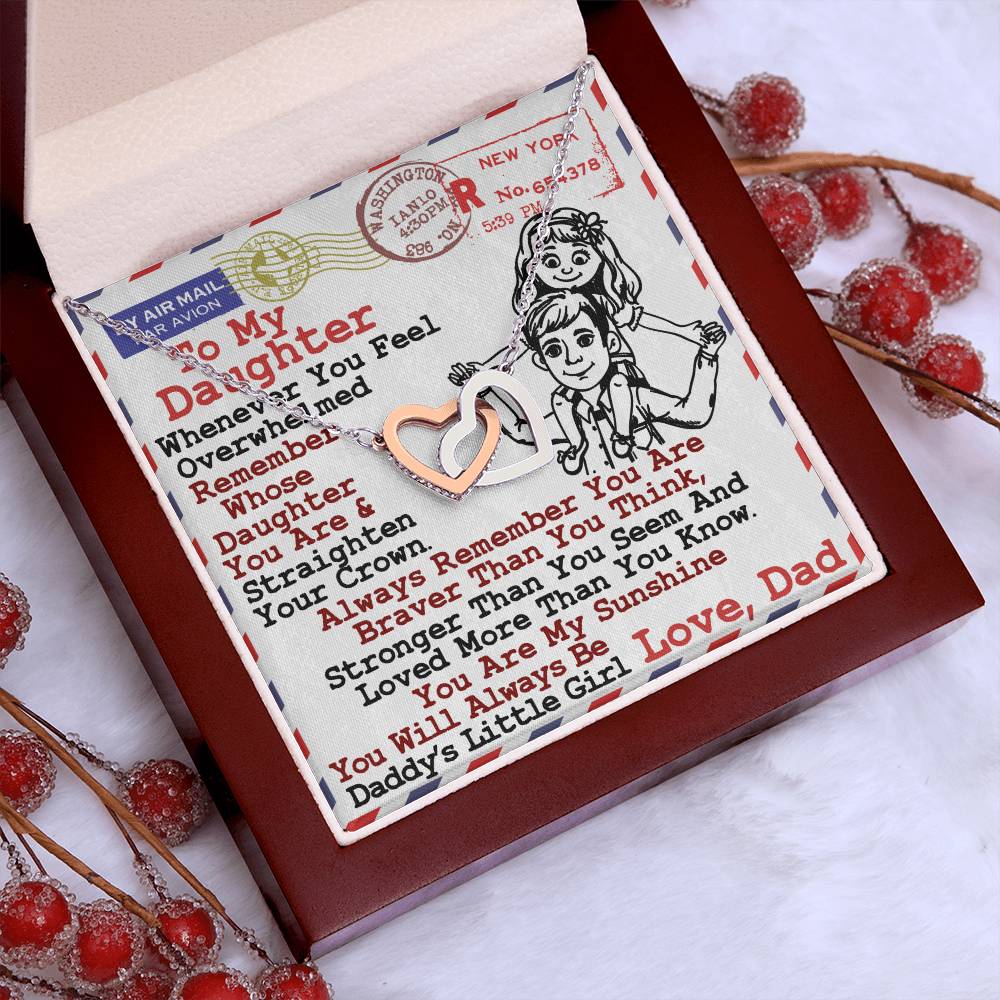 NEW YORK
R No. 654378
5:39 PM
WASHINGTON
IAN10
4:30PM
NO. 983
BY AIR MAIL
PAR AVION
To My
Daughter
Whenever You Feel
Overwhelmed
Remember
Whose
Daughter
You Are &
Straighten
Your Crown.
Always Remember You Are
Braver Than You Think,
Stronger Than You Seem And
Loved More Than You Know.
You Are My Sunshine
You Will Always Be
Daddy's Little Girl
Love, Dad